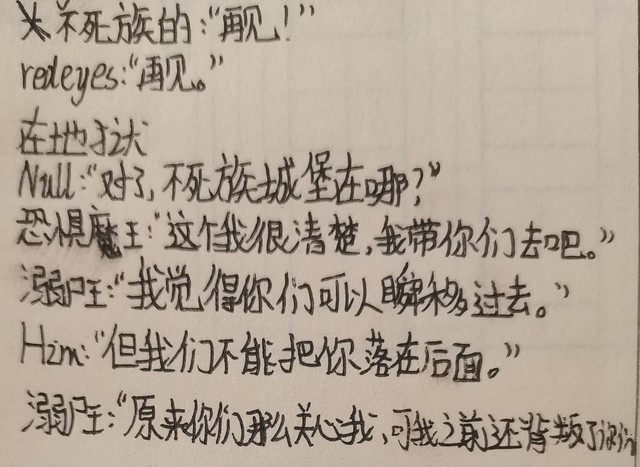 不死族的：“再见！”
redeyes：“再见。”
在地狱
Null：“对了，不死族城堡在哪？”
恐惧魔王：“这个我很清楚，我带你们去吧。”
溺尸王：“我觉得你们可以瞬移过去。”
Him：“但我们不能把你落在后面。”
溺尸王：“原来你们那么关心我，可我之前还背叛了你们